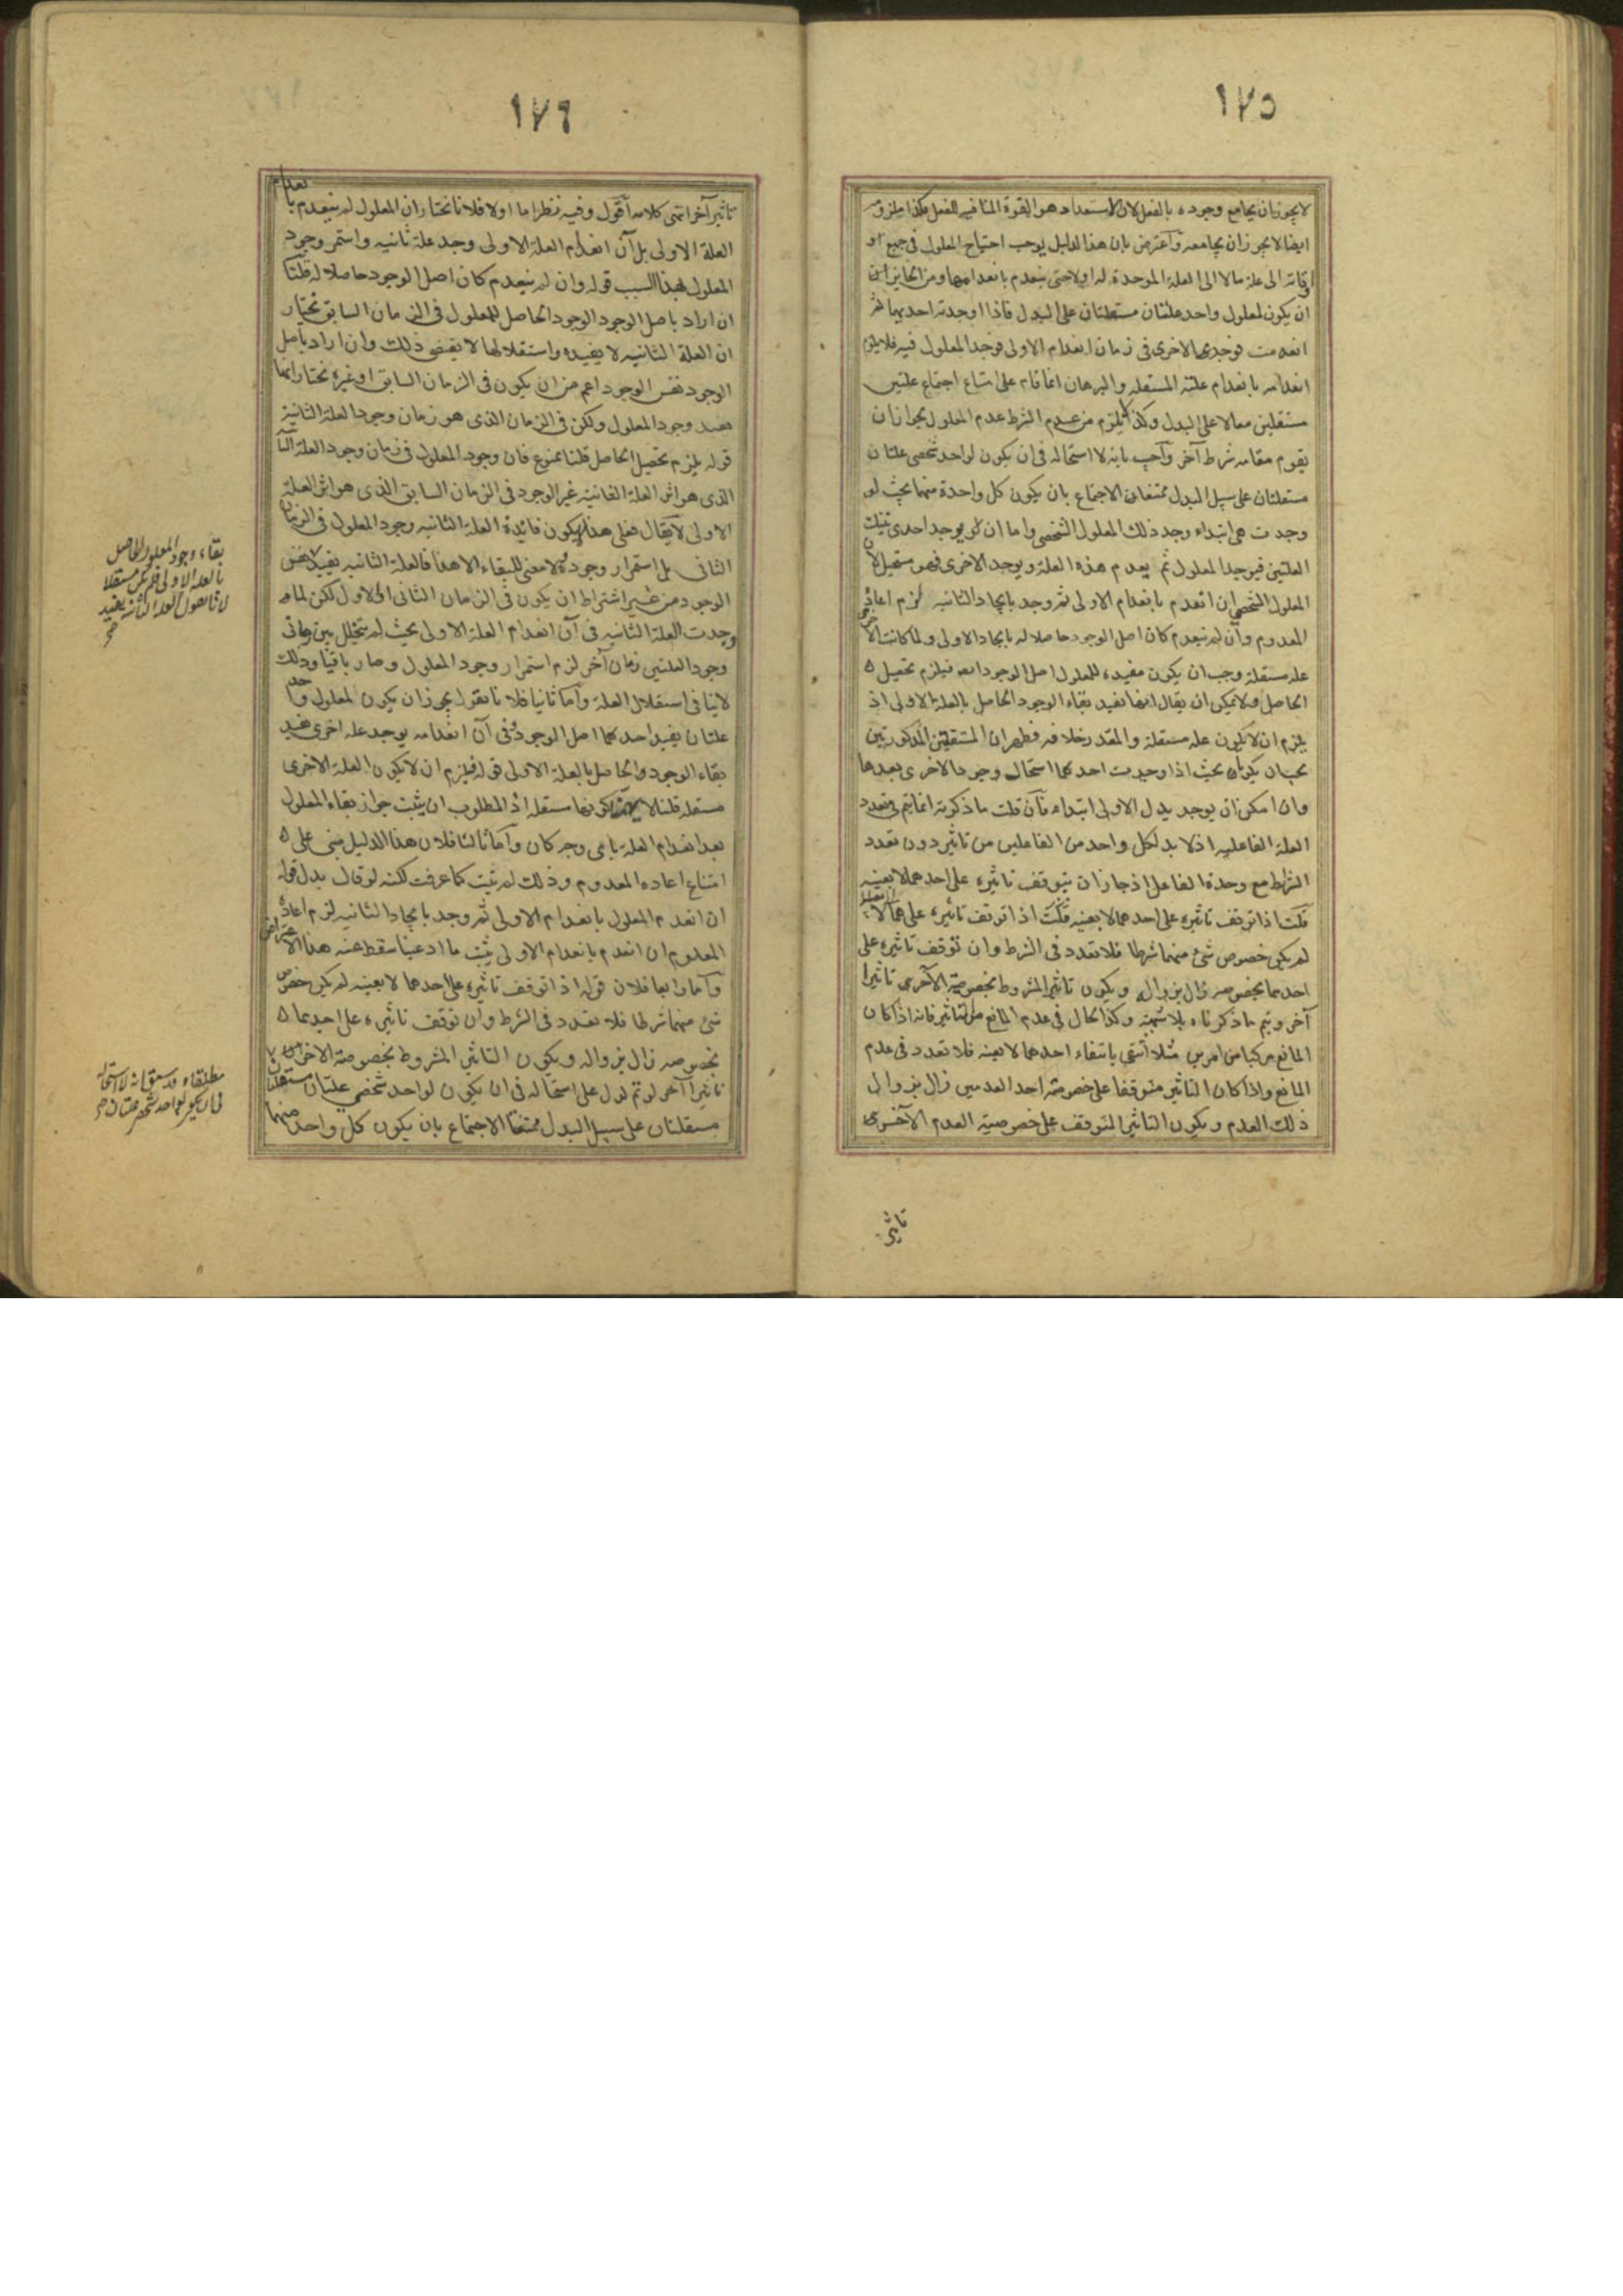 ١٧٥
لا يجوز ان يجامع وجوده بالفعل لان الاستعداد هو القوة المنافيه للفعل فكذا ملزومه
ايضا لا يجوز ان يجامعه وآعترض بان هذا الدليل يوجب احتياج المعلول فى جميع او
اوقاته الى علة ما لا الى العلة الموجدة له اولا حتى ينعدم بانعدامها ومن الجايز ان
ان يكون لمعلول واحد علتان مستقلتان على البدل فاذا اوجدته احديهما ثم
انعدمت فوجدت الاخرى فى زمان انعدام الاولى فوجد المعلول فيه فلا يلزم
انعدامه بانعدام علته المستقلة والبرهان انما قام على امتناع اجتماع علتين
مستقلتين معا لا على البدل وكذا لا يلزم من عدم الشرط عدم المعلول لجواز ان
يقوم مقامه شرط آخر وآجيب بانه لا استحاله فى ان يكون لواحد شخصى علتان
مستقلتان على سبيل البدل ممتنعتان الاجتماع بان يكون كل واحدة منهما بحيث لو
وجدت هى ابتداء وجد ذلك المعلول الشخصى واما ان يوجد احدى تينك
العلتين فيوجد المعلول ثم ينعدم هذه العلة ويوجد الاخرى فهو مستحيل لان
المعلول الشخصى ان انعدم بانعدام الاولى ثم وجد بايجاد الثانيه لزم اعادة
المعدوم وان لم ينعدم كان اصل الوجود حاصلا له بايجاد الاولى ولما كانت الاخرى
علة مستقلة وجب ان يكون مفيدة للمعلول اصل الوجود ايضا فيلزم تحصيل
الحاصل ولا يمكن ان يقال انها تفيد بقاء الوجود الحاصل بالعلة الاولى اذ
يلزم ان لا يكون علة مستقلة والمقدر خلافه فظهر ان المستقلتين المذكورتين
يجب ان يكونا بحيث اذا وجدت احدىهما استحال وجود الاخرى بعدها
وان امكن ان يوجد بدل الاولى ابتداء فآن قلت ما ذكرته انما يتم فى تعدد
العلة الفاعلية اذ لا بد لكل واحد من الفاعلين من تاثير دون تعدد
الشرايط مع وحدة الفاعل اذ جاز ان يتوقف تاثيره على احدهما لا بعينه
قلت اذا توقف تاثيره على احدهما لا بعينه
لم يكن خصوص شئ منهما شرطا فلا تعدد فى الشرط وان توقف تاثيره على
احدهما بخصوصه زال بزواله ويكون تاثير المشروط بخصوصية الآخرى تاثيرا
آخر ويتم ما ذكرناه بلا شبهة وكذا الحال فى عدم المانع من التاثير فانه اذا كان
المانع مركبا من امرين مثلا انتفى بانتفاء احدهما لا بعينه فلا تعدد فى عدم
المانع واذا كان التاثير متوقفا على خصوصية احد العدمين زال بزوال
ذلك العدم ويكون التاثير المتوقف على خصوصية العدم الآخرى
تاثير
١٧٦
تاثيرا آخر انتهى كلامه آقول وفيه نظر اما اولا فلانا نختار ان المعلول لم ينعدم بانعدام
العلة الاولى بل آن انعدام العلة الاولى وجد علة ثانيه واستمر وجود
المعلول لهذا السبب قوله وان لم ينعدم كان اصل الوجود حاصلا له قلنا
ان اراد باصل الوجود الوجود الحاصل للمعلول فى الزمان السابق نختار
ان العلة الثانيه لا يفيده واستقلالها لا يقتضى ذلك وان اراد باصل
الوجود نفس الوجود اعم من ان يكون فى الزمان السابق او غيره نختار انها
تفيد وجود المعلول ولكن فى الزمان الذى هو زمان وجود العلة الثانية
قوله يلزم تحصيل الحاصل قلنا ممنوع فان وجود المعلول فى زمان وجود العلة الثا
الذى هو اثر العلة الثانية غير الوجود فى الزمان السابق الذى هو اثر العلة
الاولى لا يقال فعلى هذا يكون فائدة العلة الثانيه وجود المعلول فى الزمان
الثانى بل استمرار وجوده ولا معنى للبقاء الا هذا فالعلة الثانيه يفيد نفس
الوجود من غير اشتراط ان يكون فى الزمان الثانى او الاول لكن لما
وجدت العلة الثانيه فى آن انعدام العلة الاولى بحيث لم يتخلل بين زمانى
وجود العلتين زمان آخر لزم استمرار وجود المعلول وصار باقيا وذلك
لا ينافى استقلال العلة وآما ثانيا فلانا نقول يجوز ان يكون لمعلول واحد
علتان يفيد احدىهما اصل الوجود وفى آن انعدامه يوجد علة اخرى تفيد
بقاء الوجود الحاصل بالعلة الاولى قوله فيلزم ان لا يكون العلة الاخرى
مستقلة قلنا لا كونها مستقلة اذ المطلوب ان يثبت جواز بقاء المعلول
بعد انعدام العلة باى وجه كان وآما ثالثا فلان هذا الدليل مبنى على
امتناع اعادة المعدوم وذلك لم يثبت كما عرفت لكنه لو قال بدل قوله
ان انعدم المعلول بانعدام الاولى ثم وجد بايجاد الثانيه لزم اعادة
المعدوم ان انعدم بانعدام الاولى يثبت ما ادعينا سقط عنه هذا الاعتراض
وآما رابعا فلان قوله اذا توقف تاثيره على احدهما لا بعينه لم يكن خصوص
شئ منهما شرطا فلا تعدد فى الشرط وان توقف تاثيره على احدهما
بخصوصه زال بزواله ويكون التاثير المشروط بخصوصية الاخرى
تاثيرا آخر لو تم لدل على استحاله فى ان يكون لواحد شخصى علتان مستقلتان
مستقلتان على سبيل البدل ممتنعتا الاجتماع بان يكون كل واحد منهما
بقاء وجود المعلول الحاصل
بالعلة الاولى فلم يكن مستقلا
لانا نقول العلة الثانيه يفيد